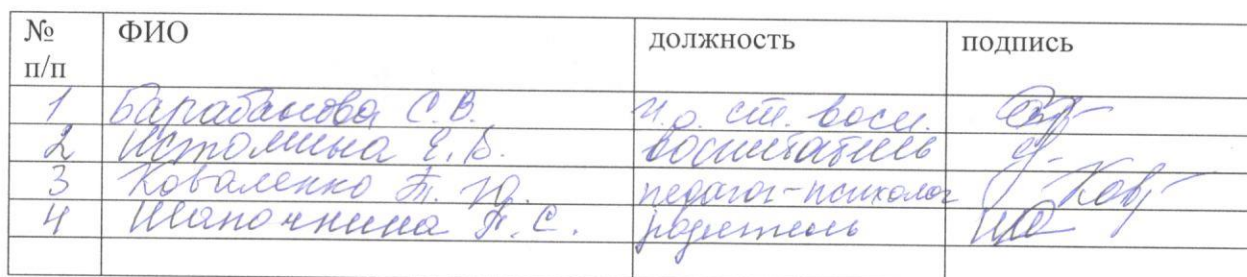 № п/п ФИО должность подпись
1 Барабанова С.В. И.о. ст. восп.
2 Истомина Е.В. воспитатель
3 Коваленко Т. Ю. педагог-психолог
4 Шапочкина Т.С. родитель